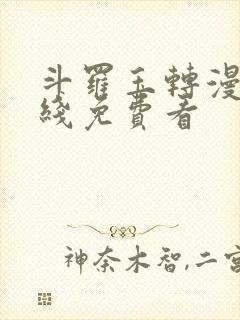 斗羅玉轉漫
綫免費看
神奈木智,二宮